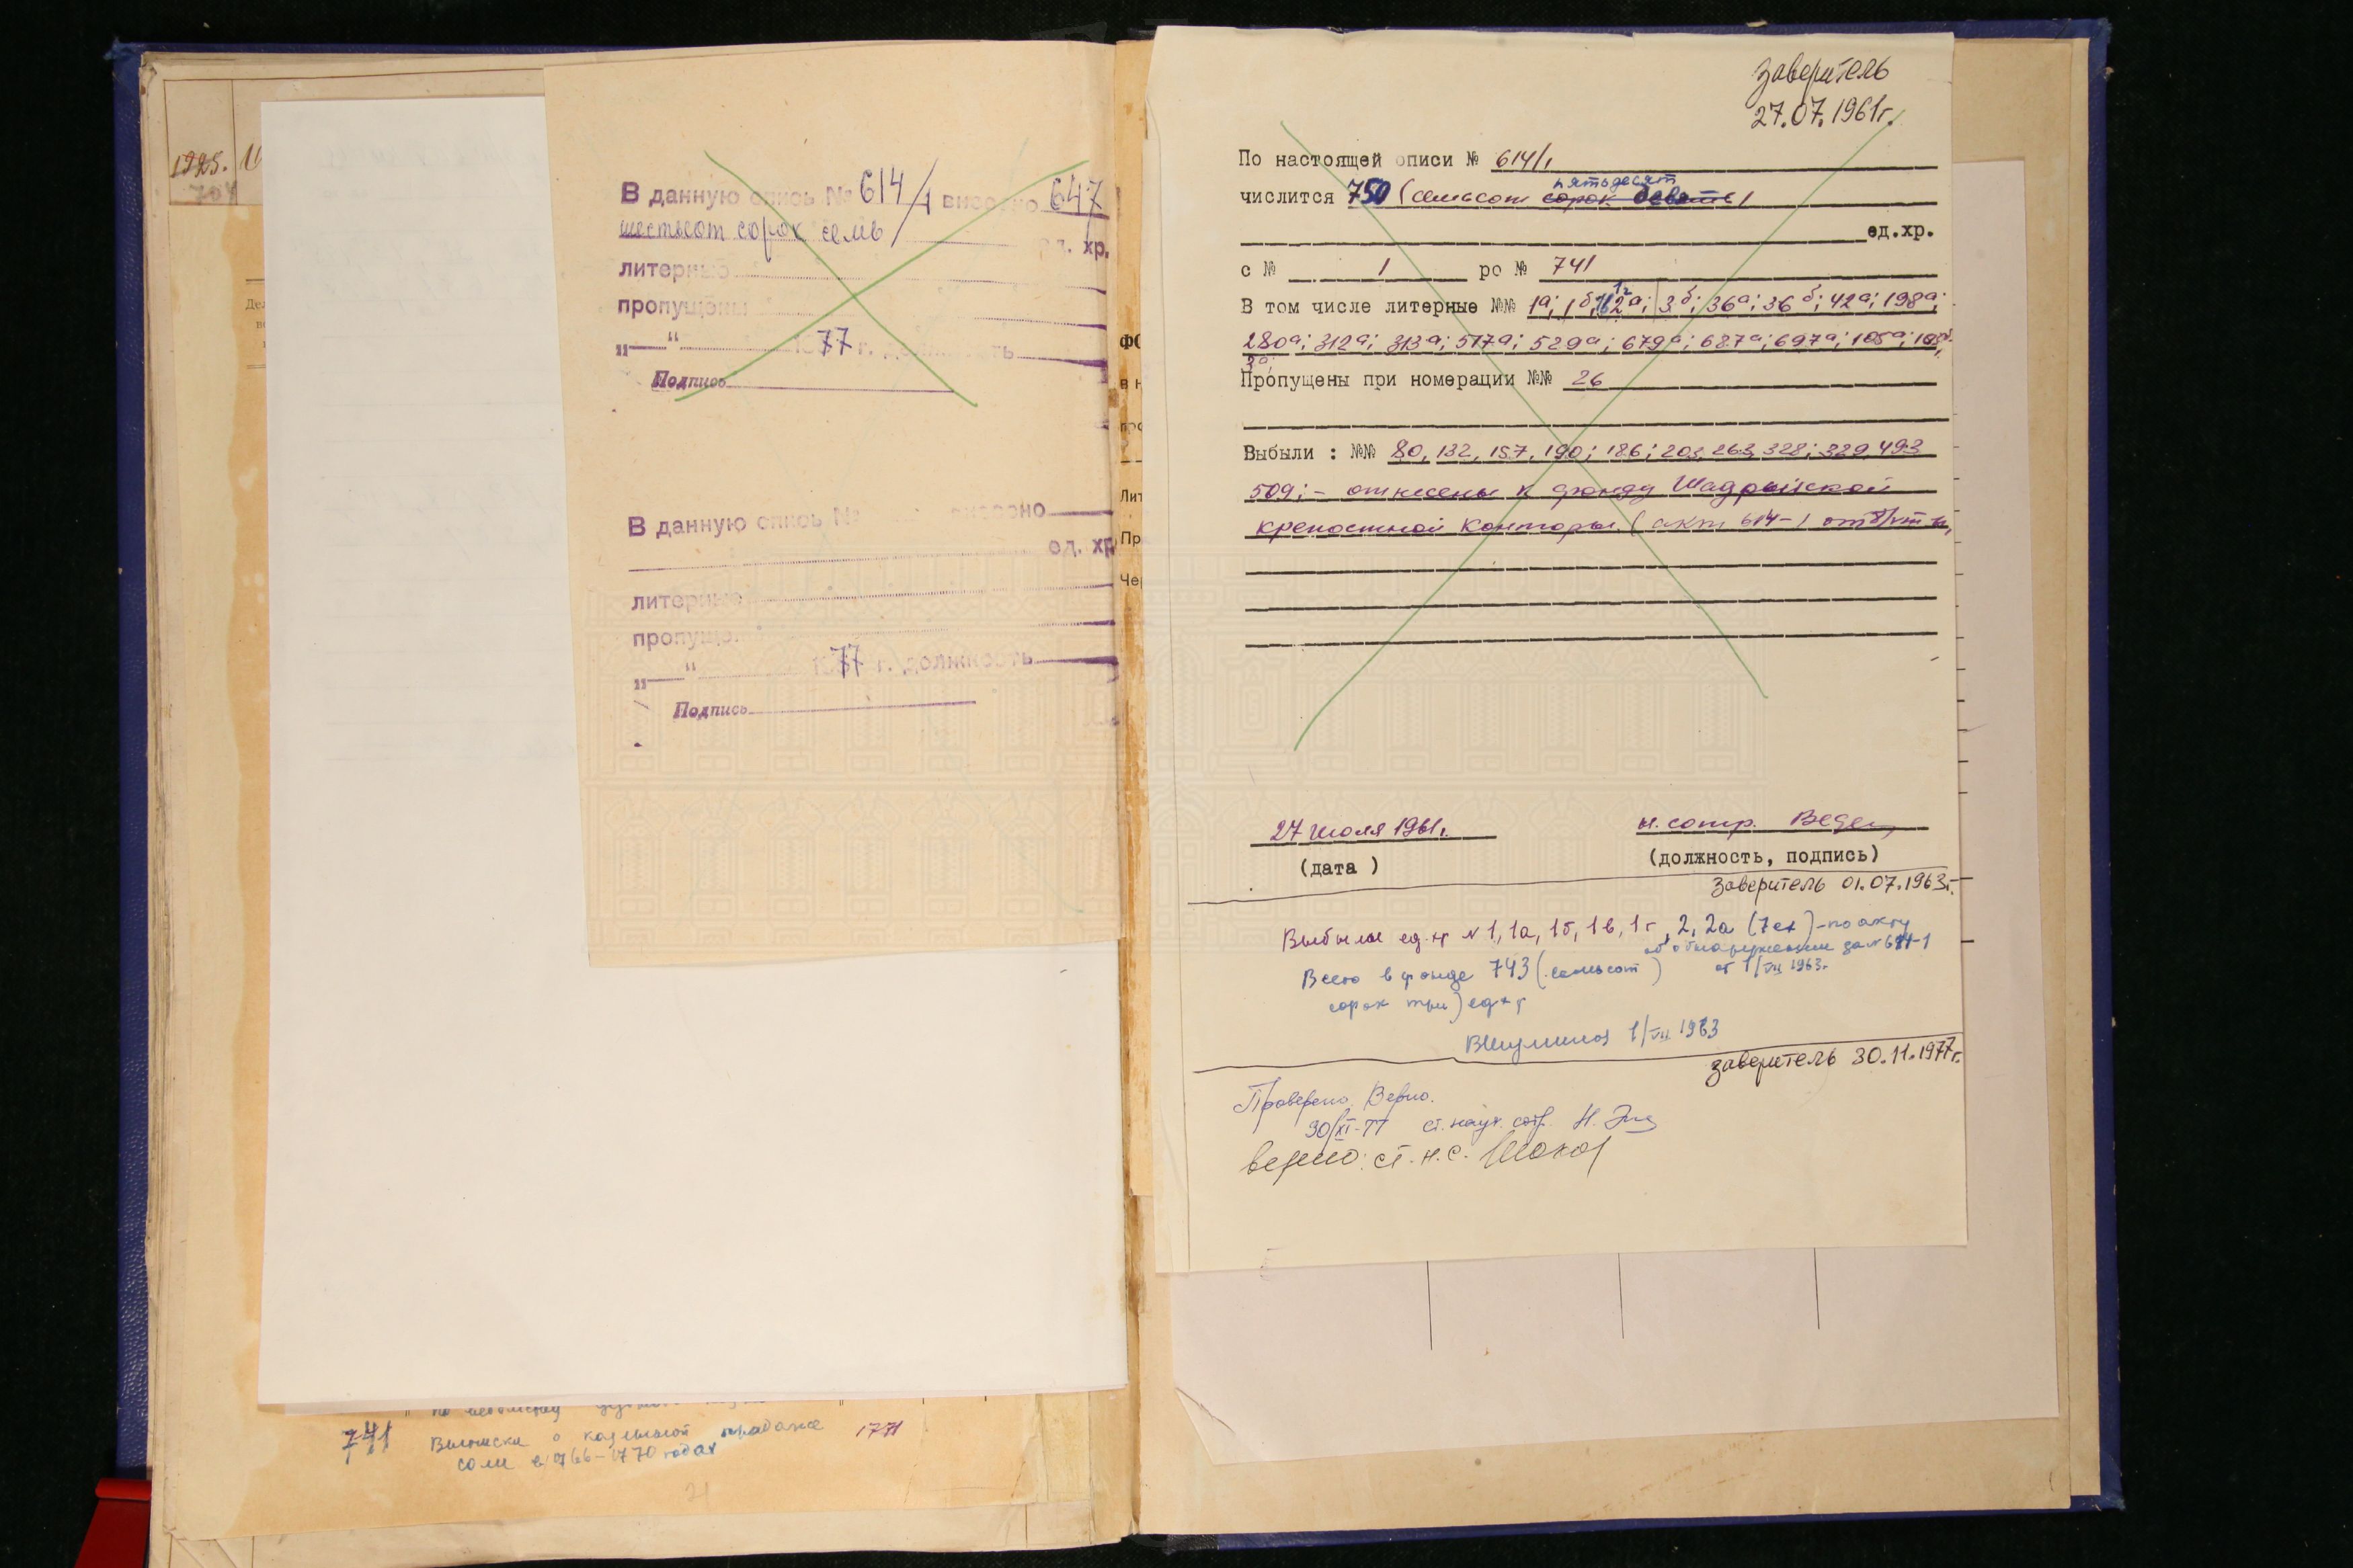 1925.
704
В данную опись № 614/1 внесено 647
шестьсот сорок семь
ед. хр.
литерные
пропущены
„ “ 1977 г. должность
Подпись
В данную опись № внесено
ед. хр
литерные
пропуще
„ “ 1977 г. должность
Подпись
741 Выписки о казенной продаже 1771
соли в 1766-1770 годах
21
Заверитель
27.07.1961г.
По настоящей описи № 614/1
пятьдесят
числится 750 (семьсот сорок девять)
ед.хр.
с № 1 ро № 741
В том числе литерные №№ 1а; 1б; 1в 1г 2а; 3б; 36а; 36б; 42а; 198а;
280а; 312а; 313а; 517а; 529а; 679а; 687а; 697а; 105а; 105б;
3а;
Пропущены при номерации №№ 26
Выбыли : №№ 80, 132, 157, 190; 186; 203, 263, 328; 329, 493
509; - отнесены к фонду Шадринской
крепостной конторы (акт 614-1 от
27 июля 1961г.
н. сотр.
(дата )
(должность, подпись)
Заверитель 01.07.1963г.
Выбыли ед.хр № 1, 1а, 1б, 1в, 1г, 2, 2а (7 ех) - по акту
об обнаружении за № 614-1
Всего в фонде 743 (семьсот) от 1/VII 1963г.
сорок три) ед хр
1/VII 1963
заверитель 30.11.1977г.
Проверено. Верно.
30/XI-77 ст. науч. сотр. Н.
верно: ст. н.с.